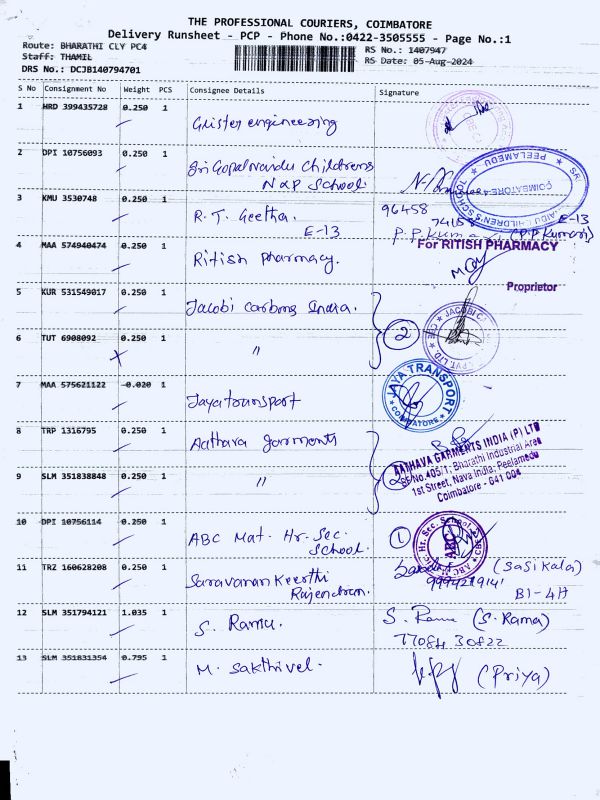 THE PROFESSIONAL COURIERS, COIMBATORE
Delivery Runsheet - PCP - Phone No.:0422-3505555 - Page No.:1
Route: BHARATHI CLY PC4
RS No.: 1407947
Staff: THAMIL
RS Date: 05-Aug-2024
DRS No.: DCJB140794701
S No Consignment No Weight PCS Consignee Details Signature
1 HRD 399435728 0.250 1
engineering
2 DPI 10756093 0.250 1 Sri Gopal Naidu Childrens
N&P School.
3 KMU 3530748 0.250 1 R. T. Geetha.
E-13
96458
74158
E-13
(P.P Kumari)
4 MAA 574940474 0.250 1 Ritish Pharmacy.
For RITISH PHARMACY
Proprietor
5 KUR 531549017 0.250 1 Jacobi Carbons India.
2
6 TUT 6908092 0.250 1 "
7 MAA 575621122 -0.020 1 Jaya transport
JAYA TRANSPORT
COIMBATORE
8 TRP 1316795 0.250 1 Aathava garments
AATHAVA GARMENTS INDIA (P) LTD
SF No.405/1, Bharathi Industrial Area
1st Street, Nava India, Peelamedu
Coimbatore - 641 004
9 SLM 351838848 0.250 1 "
2
10 DPI 10756114 0.250 1 ABC Mat. Hr. Sec.
School.
1
11 TRZ 160628208 0.250 1 Saravanan Keerthi
Rajendran.
(Sasikala)
B1-4H
12 SLM 351794121 1.035 1 S. Ramu.
S. Rama (S. Rama)
77084 30822
13 SLM 351831354 0.795 1 M. Sakthivel.
(Priya)